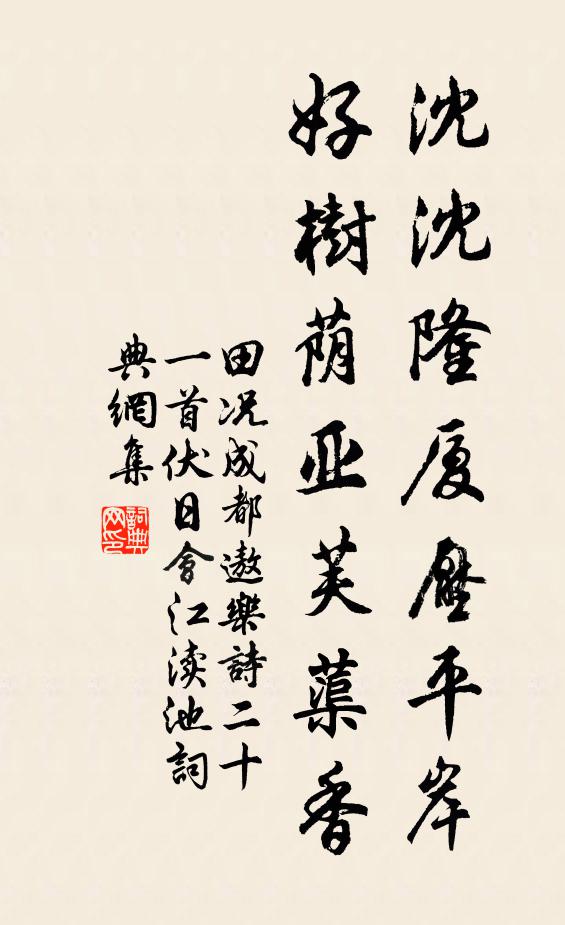 沈沈隆厦壓平岸
好樹荫亚芙蕖香
田况成都遨樂詩二十
一首伏日會江渎池詞
典網集
詞典
网印